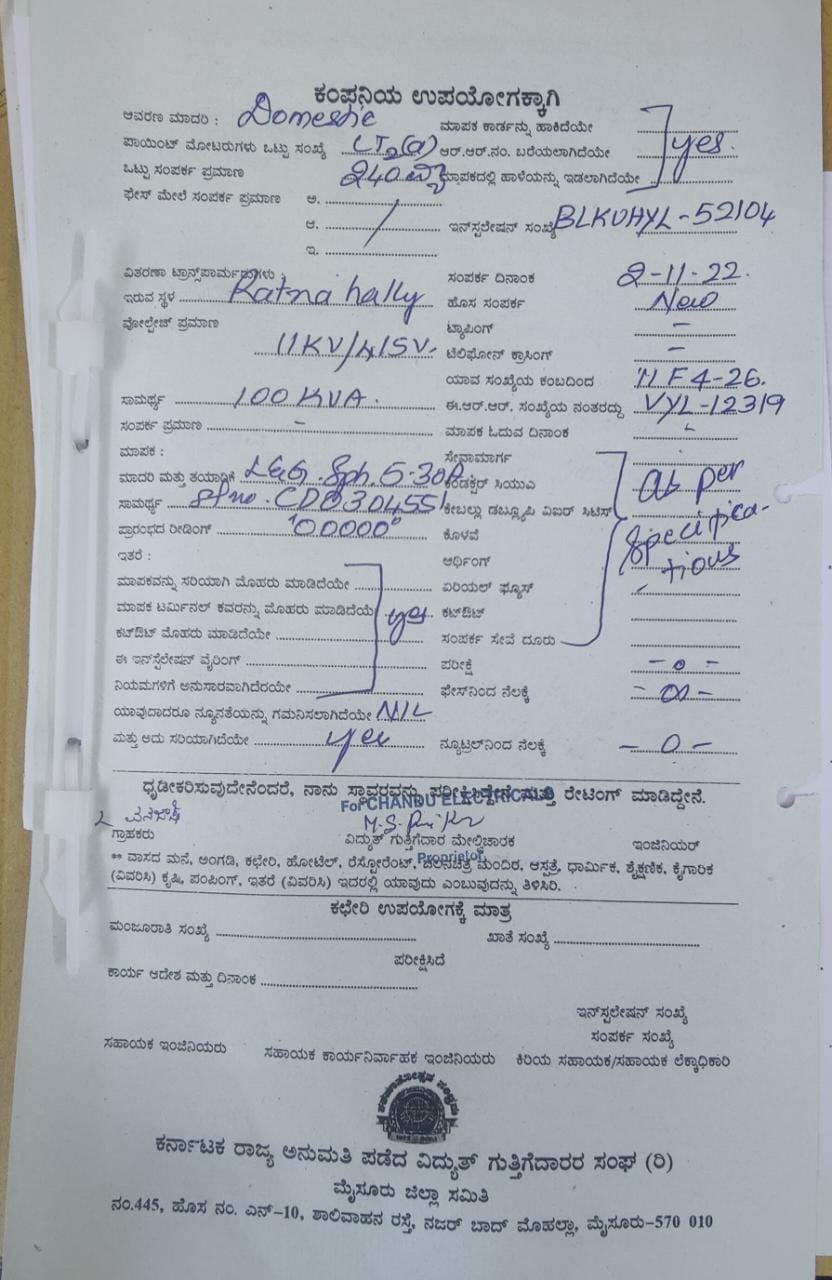 ಕಂಪನಿಯ ಉಪಯೋಗಕ್ಕಾಗಿ
ಆವರಣ ಮಾದರಿ : Domestic ಮಾಪಕ ಕಾರ್ಡನ್ನು ಹಾಕಿದೆಯೇ
ಪಾಯಿಂಟ್ ಮೋಟರುಗಳು ಒಟ್ಟು ಸಂಖ್ಯೆ LT2(a) ಆರ್.ಆರ್.ನಂ. ಬರೆಯಲಾಗಿದೆಯೇ yes.
ಒಟ್ಟು ಸಂಪರ್ಕ ಪ್ರಮಾಣ 240 ಮಾಪಕದಲ್ಲಿ ಹಾಳೆಯನ್ನು ಇಡಲಾಗಿದೆಯೇ
ಫೇಸ್ ಮೇಲೆ ಸಂಪರ್ಕ ಪ್ರಮಾಣ ಅ.
ಆ. ಇನ್‌ಸ್ಟಲೇಷನ್ ಸಂಖ್ಯೆ BLKUHYL-52104
ಇ.
ವಿತರಣಾ ಟ್ರಾನ್ಸ್‌ಪಾರ್ಮರುಗಳು : ಸಂಪರ್ಕ ದಿನಾಂಕ 2-11-22.
ಇರುವ ಸ್ಥಳ Ratnahally ಹೊಸ ಸಂಪರ್ಕ New
ವೋಲ್ಟೇಜ್ ಪ್ರಮಾಣ ಟ್ಯಾಪಿಂಗ್ -
11KV/415V. ಟೆಲಿಫೋನ್ ಕ್ರಾಸಿಂಗ್ -
ಯಾವ ಸಂಖ್ಯೆಯ ಕಂಬದಿಂದ 11F4-26.
ಸಾಮರ್ಥ್ಯ 100 KVA. ಈ.ಆರ್.ಆರ್. ಸಂಖ್ಯೆಯ ನಂತರದ್ದು VYL-12319
ಸಂಪರ್ಕ ಪ್ರಮಾಣ - ಮಾಪಕ ಓದುವ ದಿನಾಂಕ
ಮಾಪಕ : ಸೇವಾಮಾರ್ಗ
ಮಾದರಿ ಮತ್ತು ತಯಾರಿಕೆ L&G. Sph. 5-30A ಕಂಡಕ್ಟರ್ ಸಿಯುಎ as per
ಸಾಮರ್ಥ್ಯ Sl no. CD0304551 ಕೇಬಲ್ಲು ಡಬ್ಲ್ಯೂಪಿ ವಿಐರ್ ಸಿಟಿಸ್
ಪ್ರಾರಂಭದ ರೀಡಿಂಗ್ "00000" ಕೊಳವೆ Specifica-
ಇತರೆ : ಆರ್ಥಿಂಗ್ tions
ಮಾಪಕವನ್ನು ಸರಿಯಾಗಿ ಮೊಹರು ಮಾಡಿದೆಯೇ ಏರಿಯಲ್ ಫ್ಯೂಸ್
ಮಾಪಕ ಟರ್ಮಿನಲ್ ಕವರನ್ನು ಮೊಹರು ಮಾಡಿದೆಯೆ yes ಕಟ್‌ಔಟ್
ಕಟ್‌ಔಟ್ ಮೊಹರು ಮಾಡಿದೆಯೇ ಸಂಪರ್ಕ ಸೇವೆ ದೂರು
ಈ ಇನ್‌ಸ್ಟಲೇಷನ್ ವೈರಿಂಗ್ ಪರೀಕ್ಷೆ - 0 -
ನಿಯಮಗಳಿಗೆ ಅನುಸಾರವಾಗಿದೆರಯೇ ಫೇಸ್‌ನಿಂದ ನೆಲಕ್ಕೆ
ಯಾವುದಾದರೂ ನ್ಯೂನತೆಯನ್ನು ಗಮನಿಸಲಾಗಿದೆಯೇ NIL
ಮತ್ತು ಅದು ಸರಿಯಾಗಿದೆಯೇ yes ನ್ಯೂಟ್ರಲ್‌ನಿಂದ ನೆಲಕ್ಕೆ - 0 -
ಧೃಡೀಕರಿಸುವುದೇನೆಂದರೆ, ನಾನು ಸ್ಥಾವರವನ್ನು ಪರೀಕ್ಷಿದ್ದೇನೆ ಮತ್ತು ರೇಟಿಂಗ್ ಮಾಡಿದ್ದೇನೆ.
For CHANDU ELECTRICALS
ಗ್ರಾಹಕರು ವಿದ್ಯುತ್ ಗುತ್ತಿಗೆದಾರ ಮೇಲ್ವಿಚಾರಕ ಇಂಜಿನಿಯರ್
Proprietor
** ವಾಸದ ಮನೆ, ಅಂಗಡಿ, ಕಛೇರಿ, ಹೋಟೆಲ್, ರೆಸ್ಟೋರೆಂಟ್, ಚಲನಚಿತ್ರ ಮಂದಿರ, ಆಸ್ಪತ್ರೆ, ಧಾರ್ಮಿಕ, ಶೈಕ್ಷಣಿಕ, ಕೈಗಾರಿಕ
(ವಿವರಿಸಿ) ಕೃಷಿ, ಪಂಪಿಂಗ್, ಇತರೆ (ವಿವರಿಸಿ) ಇದರಲ್ಲಿ ಯಾವುದು ಎಂಬುವುದನ್ನು ತಿಳಿಸಿರಿ.
ಕಛೇರಿ ಉಪಯೋಗಕ್ಕೆ ಮಾತ್ರ
ಮಂಜೂರಾತಿ ಸಂಖ್ಯೆ ಖಾತೆ ಸಂಖ್ಯೆ
ಪರೀಕ್ಷಿಸಿದೆ
ಕಾರ್ಯ ಆದೇಶ ಮತ್ತು ದಿನಾಂಕ
ಇನ್‌ಸ್ಟಲೇಷನ್ ಸಂಖ್ಯೆ
ಸಂಪರ್ಕ ಸಂಖ್ಯೆ
ಸಹಾಯಕ ಇಂಜಿನಿಯರು ಸಹಾಯಕ ಕಾರ್ಯನಿರ್ವಾಹಕ ಇಂಜಿನಿಯರು ಕಿರಿಯ ಸಹಾಯಕ/ಸಹಾಯಕ ಲೆಕ್ಕಾಧಿಕಾರಿ
ಕರ್ನಾಟಕ ರಾಜ್ಯ ಅನುಮತಿ ಪಡೆದ ವಿದ್ಯುತ್ ಗುತ್ತಿಗೆದಾರರ ಸಂಘ (ರಿ)
ಮೈಸೂರು ಜಿಲ್ಲಾ ಸಮಿತಿ
ನಂ.445, ಹೊಸ ನಂ. ಎನ್-10, ಶಾಲಿವಾಹನ ರಸ್ತೆ, ನಜರ್ ಬಾದ್ ಮೊಹಲ್ಲಾ, ಮೈಸೂರು-570 010